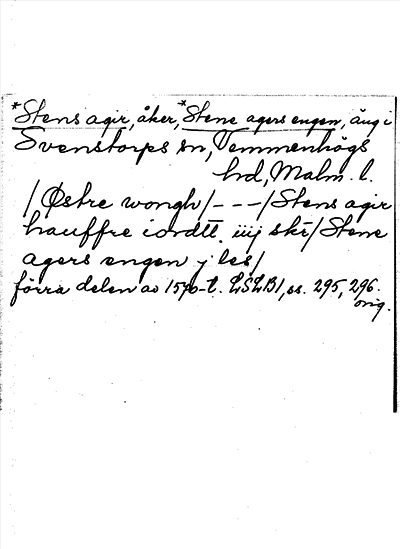 *Stens agir, åker, *Stene agers engen, äng i
Svenstorps sn, Vemmenhögs
hd, Malm. l.
/Østre wongh/---/Stens agir
hauffre iordtt. iiij skr/Stene
agers engen j les/
förra delen av 1570-t. LSLB1, ss. 295, 296.
orig.